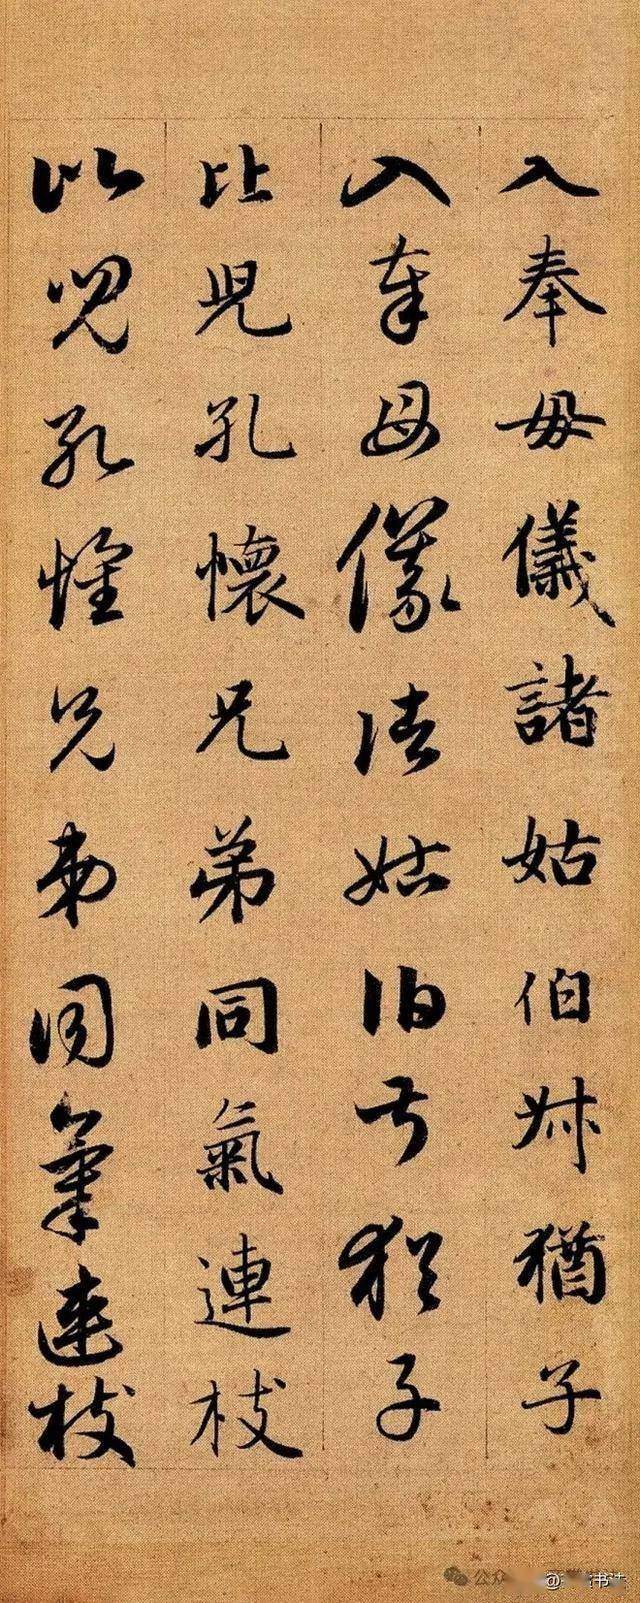 入奉母儀諸姑伯叔猶子
入奉母儀諸姑伯叔猶子
比兒孔懷兄弟同氣連枝
比兒孔懷兄弟同氣連枝
公众
@ 书法